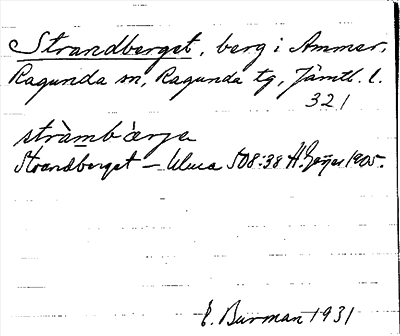 Strandberget, berg i Ammer,
Ragunda sn, Ragunda tg, Jämtl. l.
321
stràmbàrje
Strandberget – 508:38 1905.
E. Burman 1931